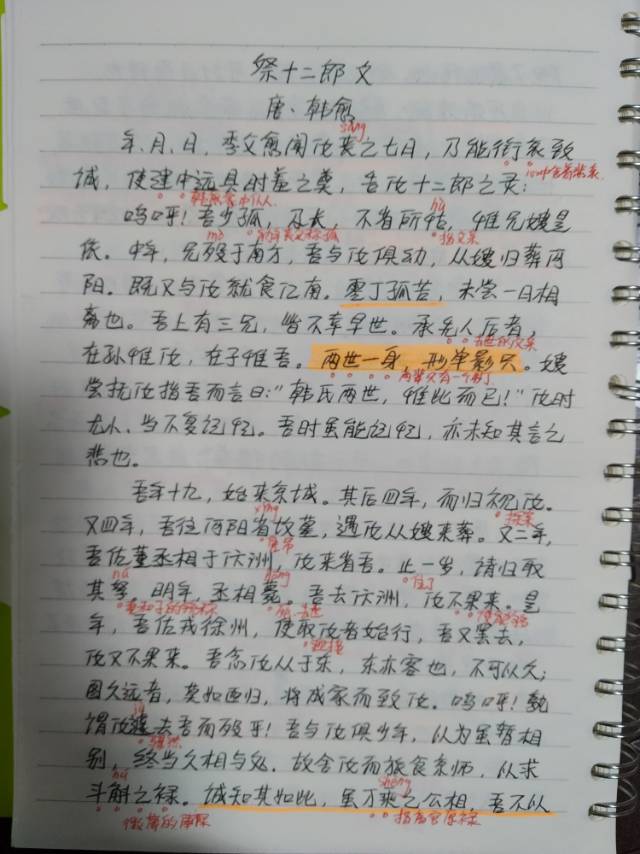 祭十二郎文
唐·韩愈
sāng
年、月、日，季父愈闻汝丧之七日，乃能衔哀致
诚，使建中远具时羞之奠，告汝十二郎之灵：
hù
呜呼！吾少孤，及长，不省所怙，惟兄嫂是
mò
指父亲
依。中年，兄殁于南方，吾与汝俱幼，从嫂归葬河
阳。既又与汝就食江南。零丁孤苦，未尝一日相
离也。吾上有三兄，皆不幸早世。承先人后者，
在孙惟汝，在子惟吾。两世一身，形单影只。嫂
尝抚汝指吾而言曰：“韩氏两世，惟此而已！”汝时
尤小，当不复记忆。吾时虽能记忆，亦未知其言之
悲也。
吾年十九，始来京城。其后四年，而归视汝。
xǐng
又四年，吾往河阳省坟墓，遇汝从嫂来葬。又二年，
吾佐董丞相于汴洲，汝来省吾。止一岁，请归取
nú
hōng
住了
其孥。明年，丞相薨。吾去汴洲，汝不果来。是
年，吾佐戎徐州，使取汝者始行，吾又罢去，
汝又不果来。吾念汝从于东，东亦客也，不可以久；
图久远者，莫如西归，将成家而致汝。呜呼！孰
谓汝遽去吾而殁乎！吾与汝俱少年，以为虽暂相
别，终当久相与处。故舍汝而旅食京师，以求
hú
shèng
斗斛之禄。诚知其如此，虽万乘之公相，吾不以
微薄的俸禄
指高官厚禄